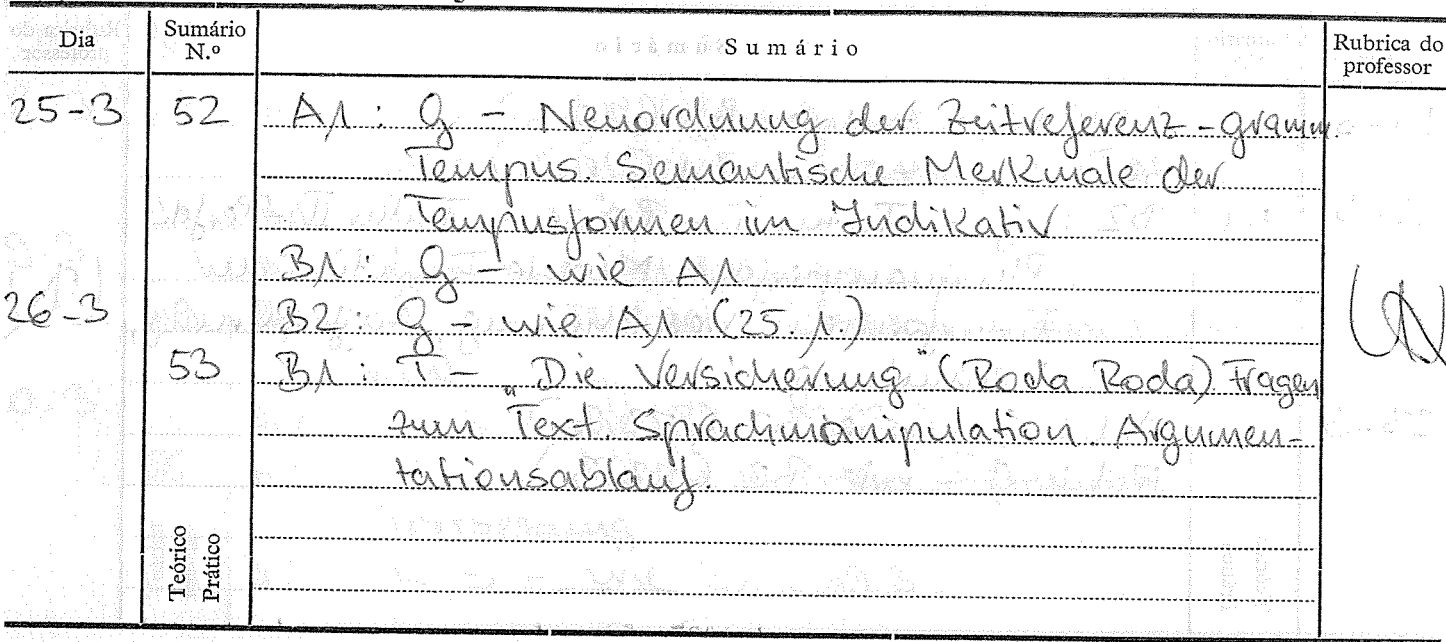 Dia Sumário N.º Sumário Rubrica do professor
25-3 52 A1: G - Neuordnung der Zeitreferenz - gramm.
Tempus. Semantische Merkmale der
Tempusformen im Indikativ
B1: G - wie A1
26-3 B2: G - wie A1 (25.1)
53 B1: T - „Die Versicherung" (Roda Roda) Fragen
zum Text. Sprachmanipulation Argumen-
tationsablauf.
Teórico
Prático